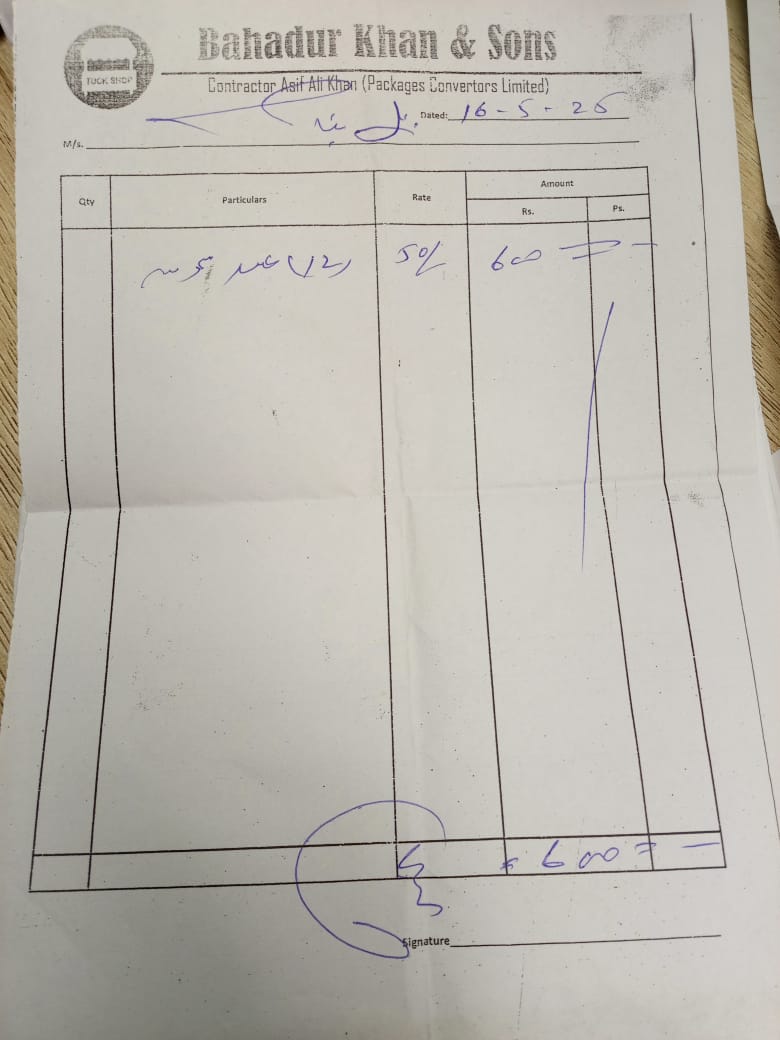 Bahadur Khan & Sons
TUCK SHOP
Contractor Asif Ali Khan (Packages Convertors Limited)
Dated: 16-5-25
M/s.
Qty Particulars Rate Amount
Rs. Ps.
(12) 50/ 600 =
600 =
Signature